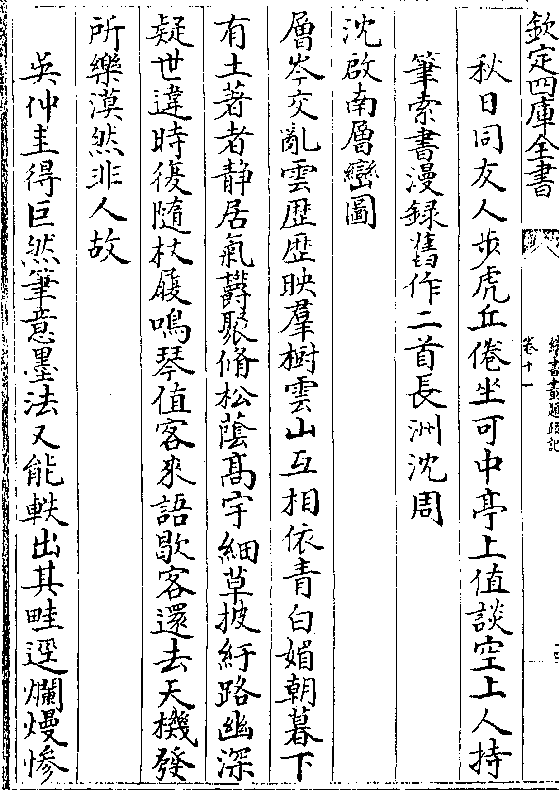 欽定四庫全書
續書畫題跋記
卷十一
秋日同友人步虎丘倦坐可中亭上值談空上人持
筆索書漫録舊作二首長洲沈周
沈啟南層巒圖
層岑交亂雲歴歴映羣樹雲山互相依青白媚朝暮下
有土著者静居氣欝聚脩松蔭髙宇細草披紆路幽深
疑世違時復隨杖屐鳴琴值客來語歇客還去天機發
所樂漠然非人故
吳仲圭得巨然筆意墨法又能軼出其畦逕爛熳慘